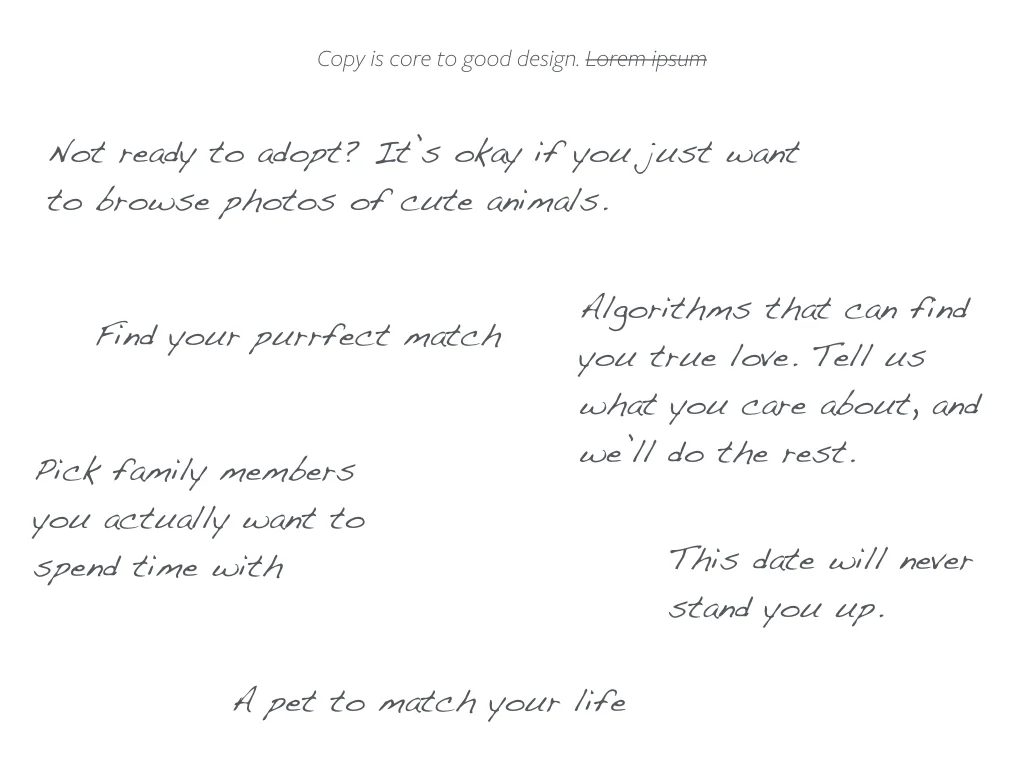 Copy is core to good design. Lorem ipsum
Not ready to adopt? It's okay if you just want
to browse photos of cute animals.
Find your purrfect match
Algorithms that can find
you true love. Tell us
what you care about, and
we'll do the rest.
Pick family members
you actually want to
spend time with
This date will never
stand you up.
A pet to match your life